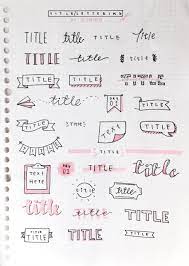 TITLE LETTERING
TITLE title TITLE title
TITLE title TITLE TITLE
TITLE TITLE
title title TITLE
TITLE TITLE TITLE
TITLE
TITLE title
TEXT HERE
title title
title TITLE title
TITLE TITLE title